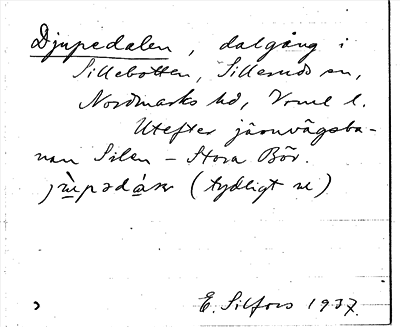 Djupedalen, dalgång i
Sillebotten, Sillerud sn,
Nordmarks hd, Vrml l.
Utefter järnvägsba-
nan Silen – Stora Bör.
(tydligt )
E. Silfors 1937.